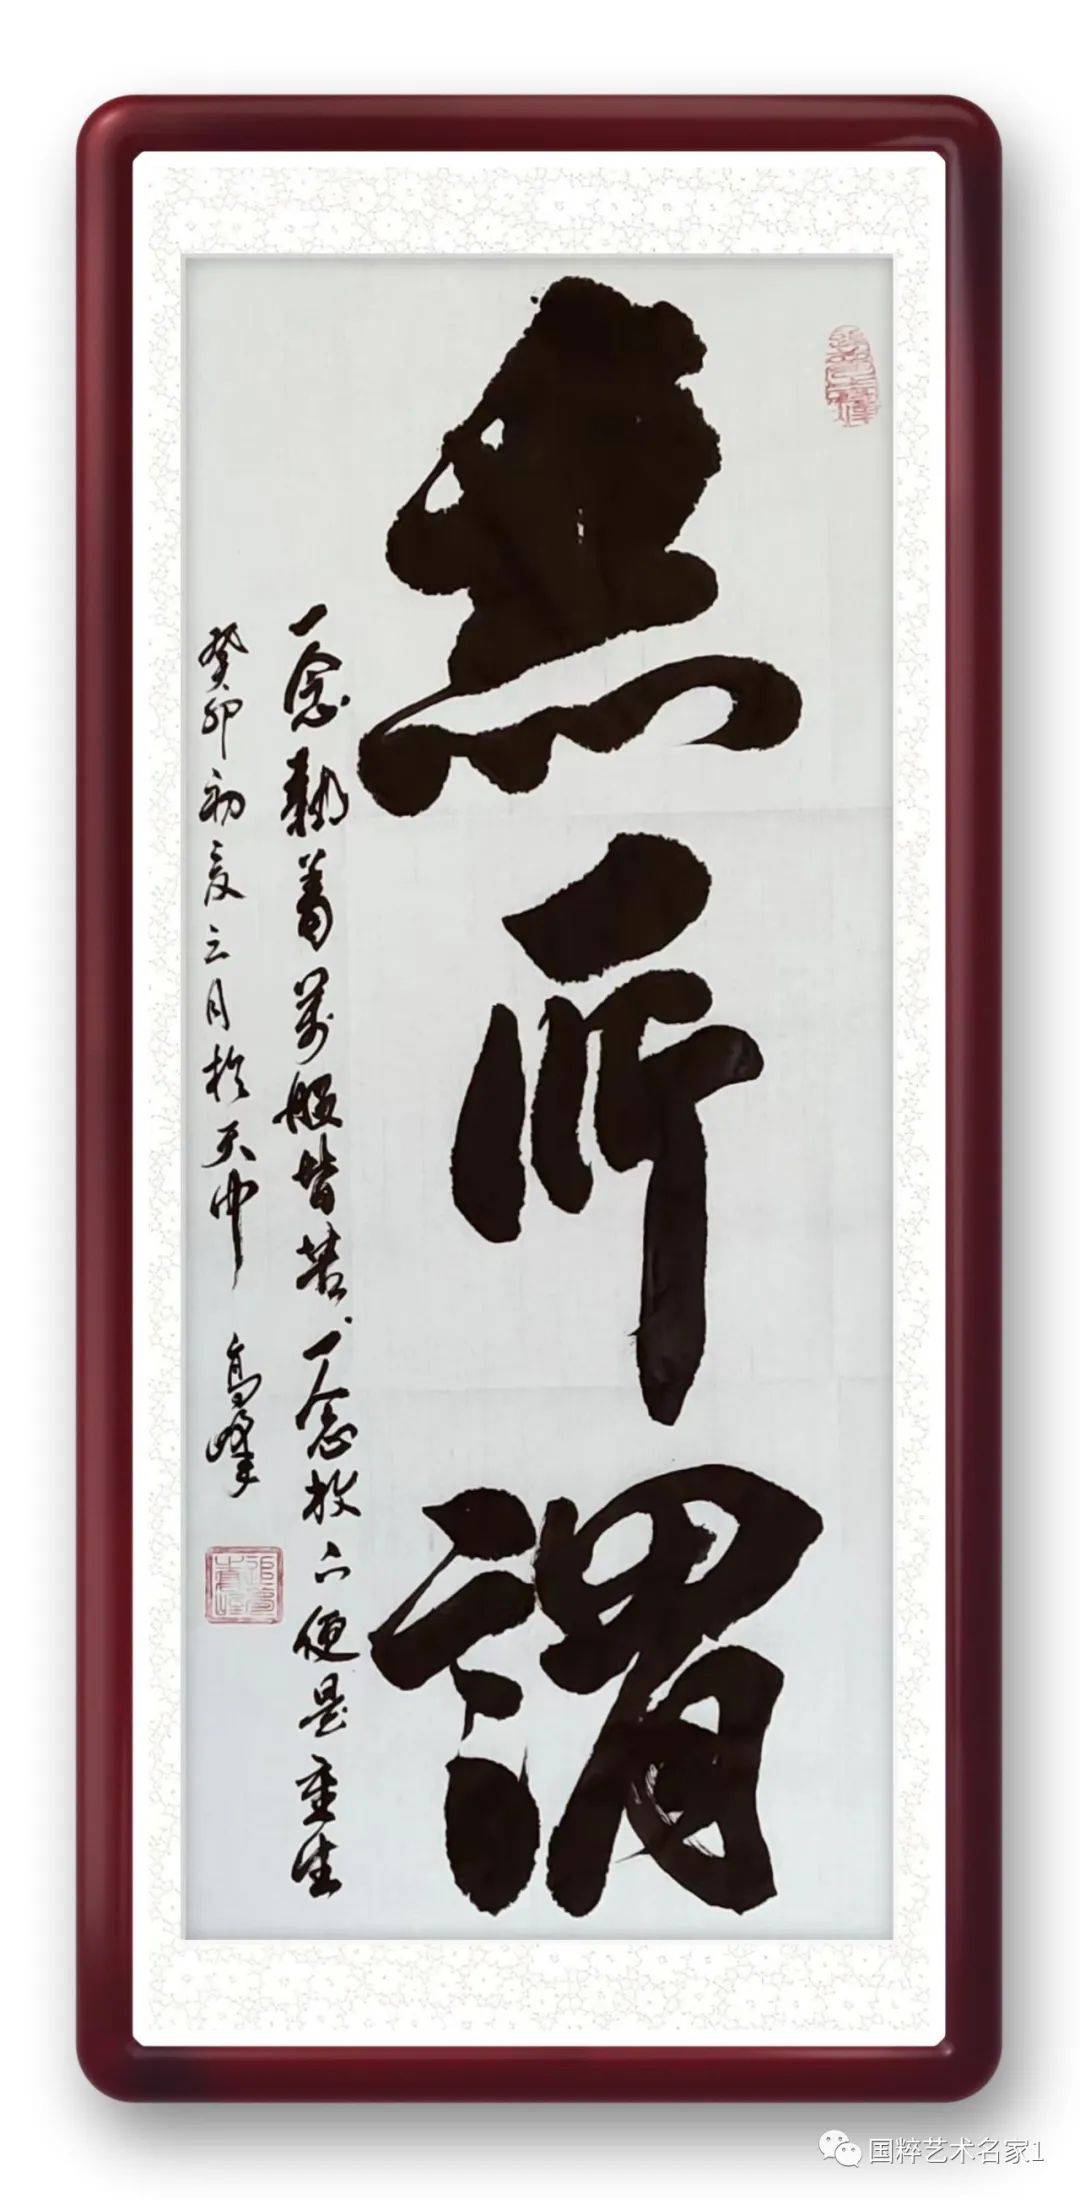 無所謂
一念執著萬般皆苦一念放下便是重生
癸卯初夏三月於天中 高峰
国粹艺术名家1